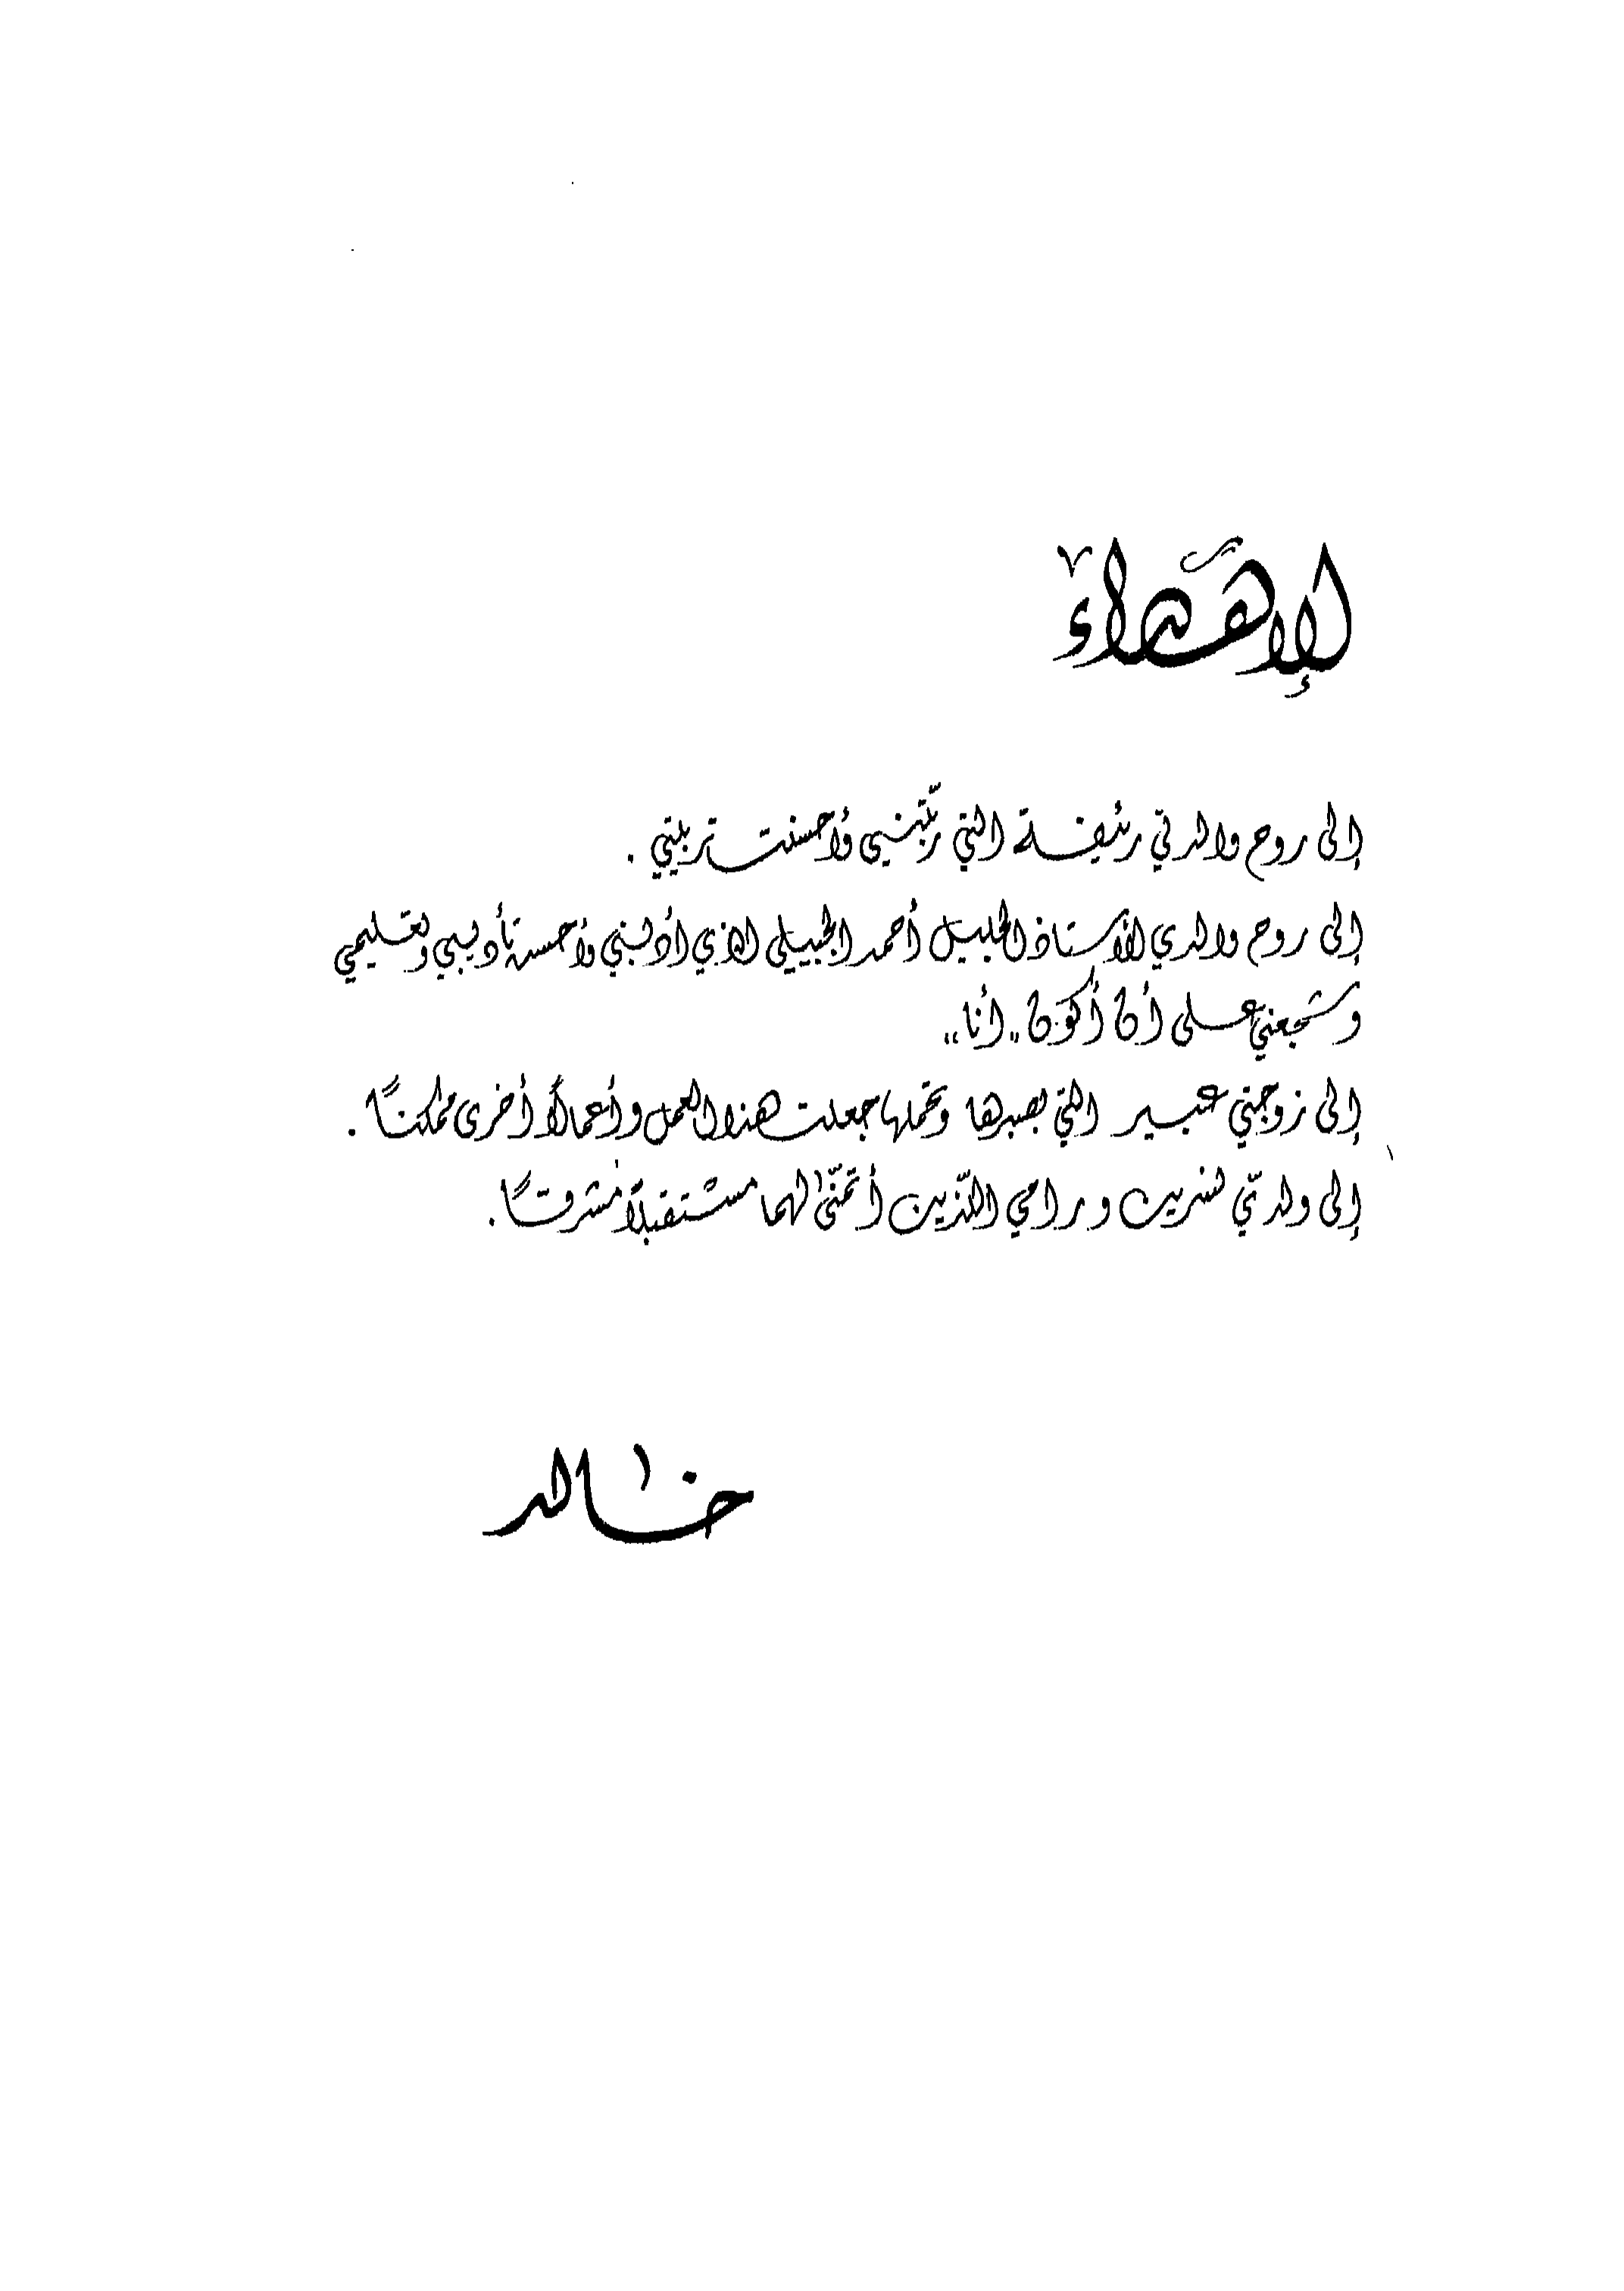 الإهداء
إلى روح والدتي رئيفة التي ربّتني وأحسنت تربيتي .
إلى روح والدي الأستاذ الجليل أحمد الجبيلي الذي أدبني وأحسن تأديبي وتعليمي
وشجعني على أن أكون "أنا"
إلى زوجتي عبير التي بصبرها وتحملها جعلت هذا العمل وأعمالاً أخرى ممكناً .
إلى ولديّ نسرين ورامي اللذين أتمنّى لهما مستقبلاً مشرقاً .
خالد